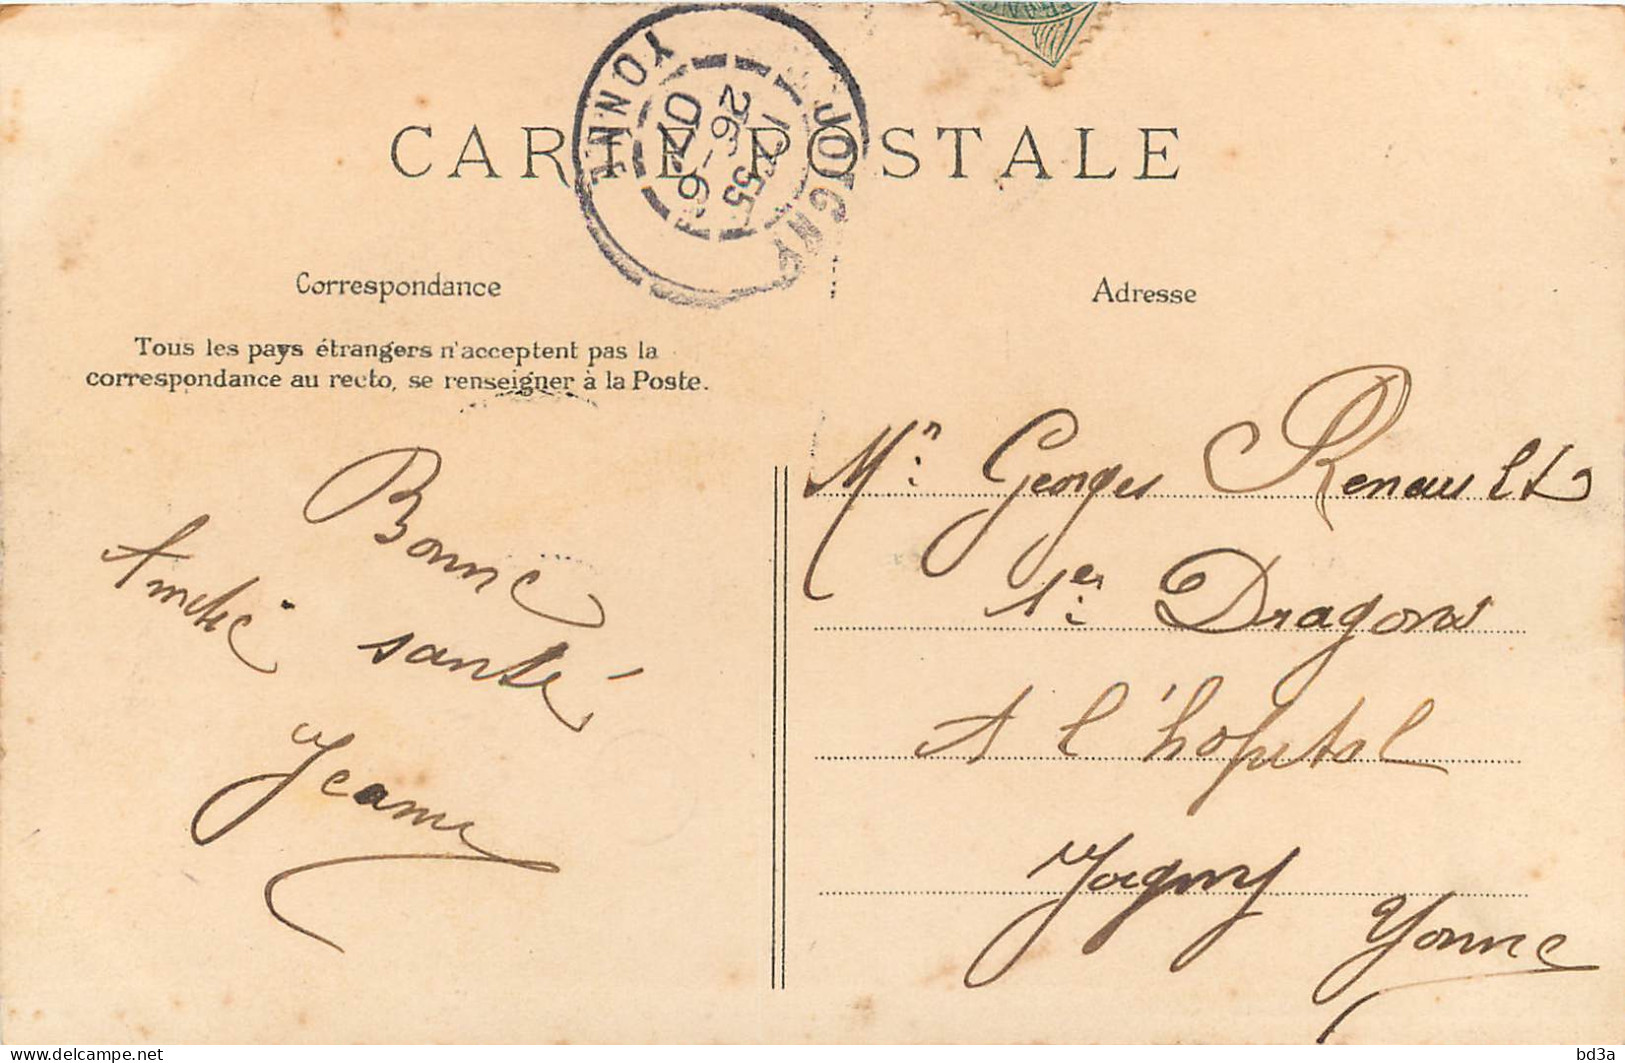 CARTE POSTALE
JOIGNY
YONNE
26-6
07
Correspondance
Adresse
Tous les pays étrangers n'acceptent pas la
correspondance au recto, se renseigner à la Poste.
Bonne
santé
André
Jeanne
Mr Georges Renault
1er Dragons
A l'hopital
Joigny
Yonne
bd3a